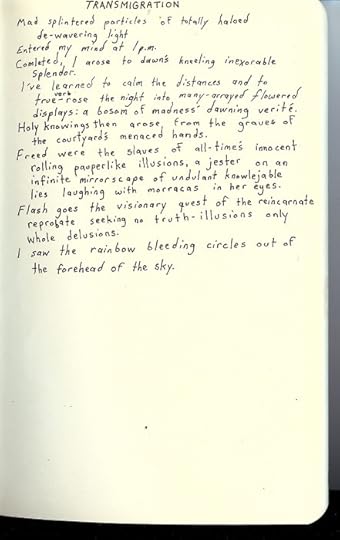 TRANSMIGRATION
Mad splintered particles of totally haloed
de-wavering light
Entered my mind at 1p.m.
Comleted, I arose to dawn's kneeling inexorable
Splendor.
I've learned to calm the distances and to
true-work rose the night into many-arrayed flowered
displays: a bosom of madness' dawning verité.
Holy knowings then arose, from the graves of
the courtyard's menaced hands.
Freed were the slaves of all-time's innocent
rolling pauperlike illusions, a jester on an
infinite mirrorscape of undulant knowlejable
lies laughing with morracas in her eyes.
Flash goes the visionary quest of the reincarnate
reprobate seeking no truth-illusions only
whole delusions.
I saw the rainbow bleeding circles out of
the forehead of the sky.